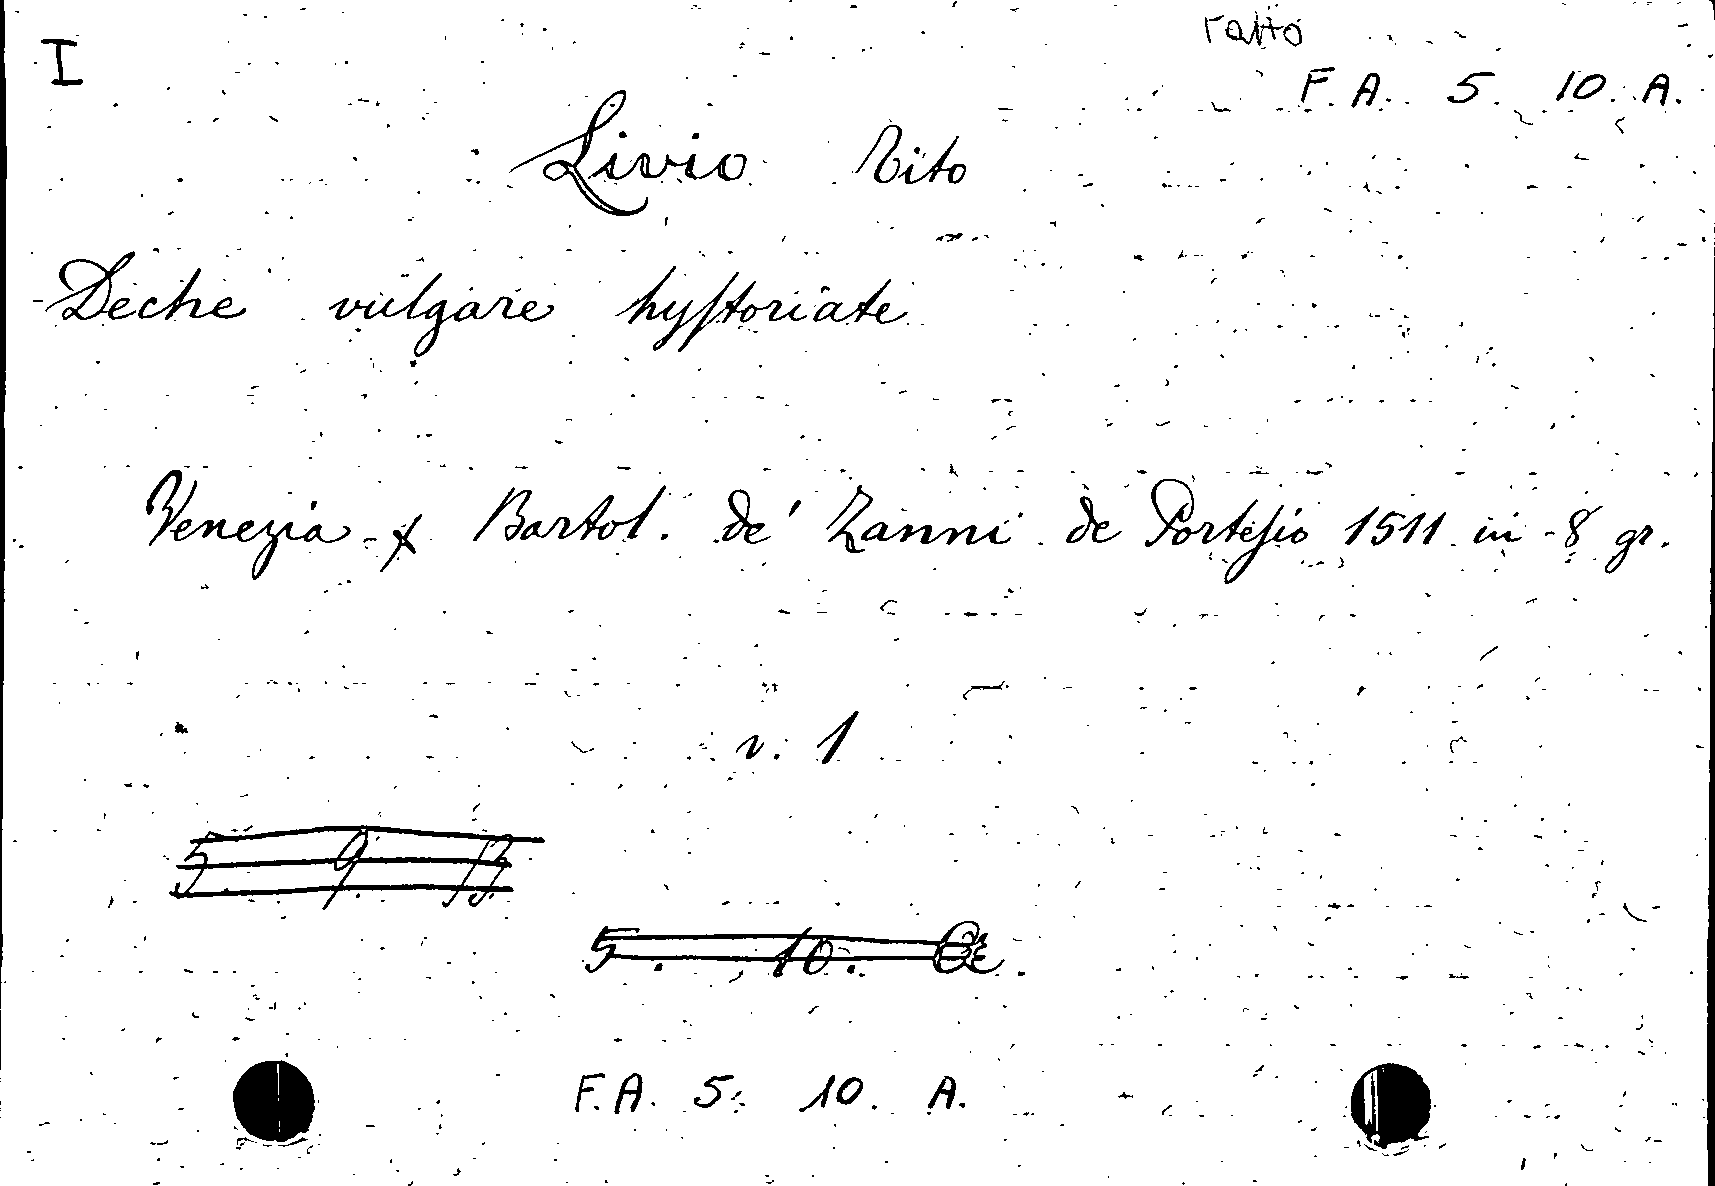 I
fatto
F. A. 5. 10. A.
Livio Tito
Deche vulgare hyſtoriate
Venezia Bartol. de' Zanni de Porteſio 1511 in-8 gr.
v. 1
5. 9. 13.
5. 10.
F. A. 5. 10. A.